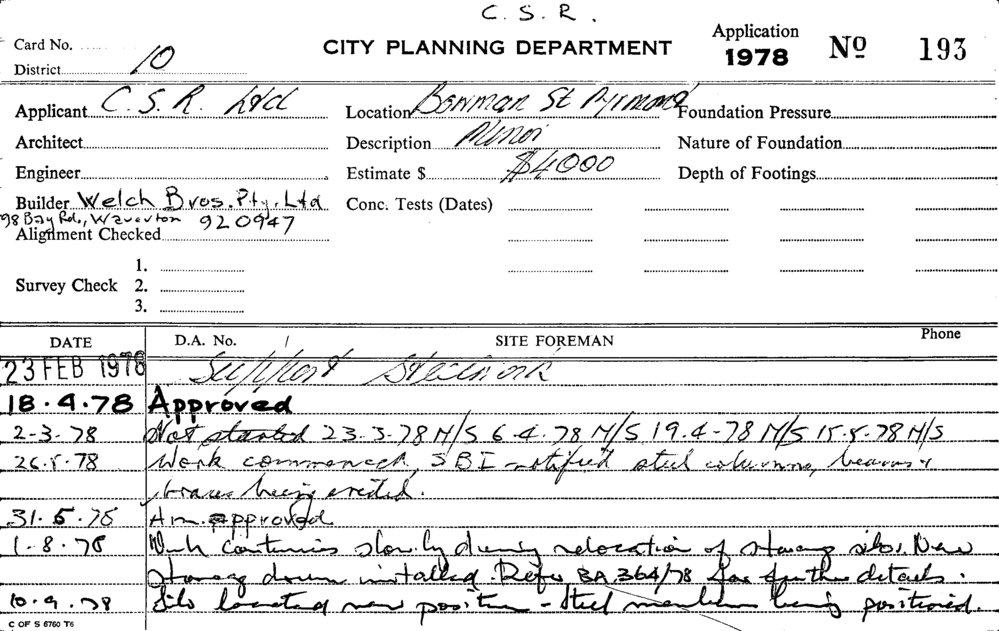 C. S. R.
Card No.
CITY PLANNING DEPARTMENT
Application
1978 No 193
District 10
Applicant C. S. R. Ltd
Location Bowman St Pyrmont
Foundation Pressure
Architect
Description Minor
Nature of Foundation
Engineer
Estimate $ $4000
Depth of Footings
Builder Welch Bros. Pty. Ltd
Conc. Tests (Dates)
98 Bay Rd., Waverton 920947
Alignment Checked
1.
Survey Check 2.
3.
DATE D.A. No. SITE FOREMAN Phone
23 FEB 1978 Support Steelwork
18.4.78 Approved
2-3-78 Not started 23-3-78 N/S 6-4-78 N/S 19.4-78 N/S 15-5-78 N/S
26.5.78 Work commenced, SBI notified steel columns, beams &
braces being erected.
31.5.78 Am. approved
1-8-78 Work continues slowly during relocation of storage silos. New
storage drum installed. Refer BA 364/78 for further details.
10.9.78 Silo located new position - steel members being positioned.
C OF S 6760 T6